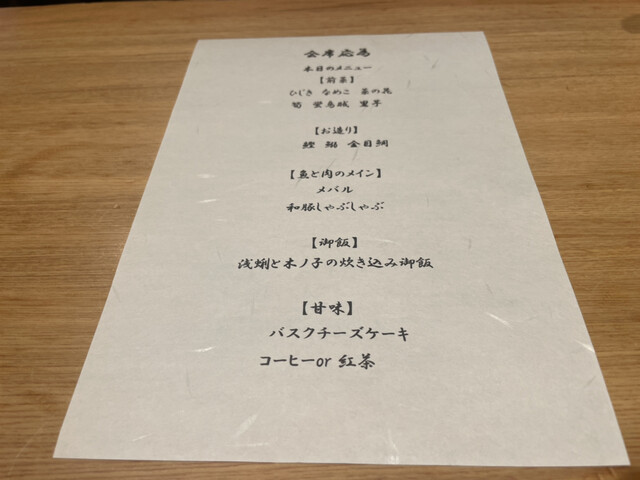 本日のメニュー
【前菜】
ひじき なめこ 菜の花
筍 蛍烏賊 里芋
【お造り】
鰹 金目鯛
【魚と肉のメイン】
メバル
和豚しゃぶしゃぶ
【御飯】
浅蜊と木ノ子の炊き込み御飯
【甘味】
バスクチーズケーキ
コーヒーor 紅茶